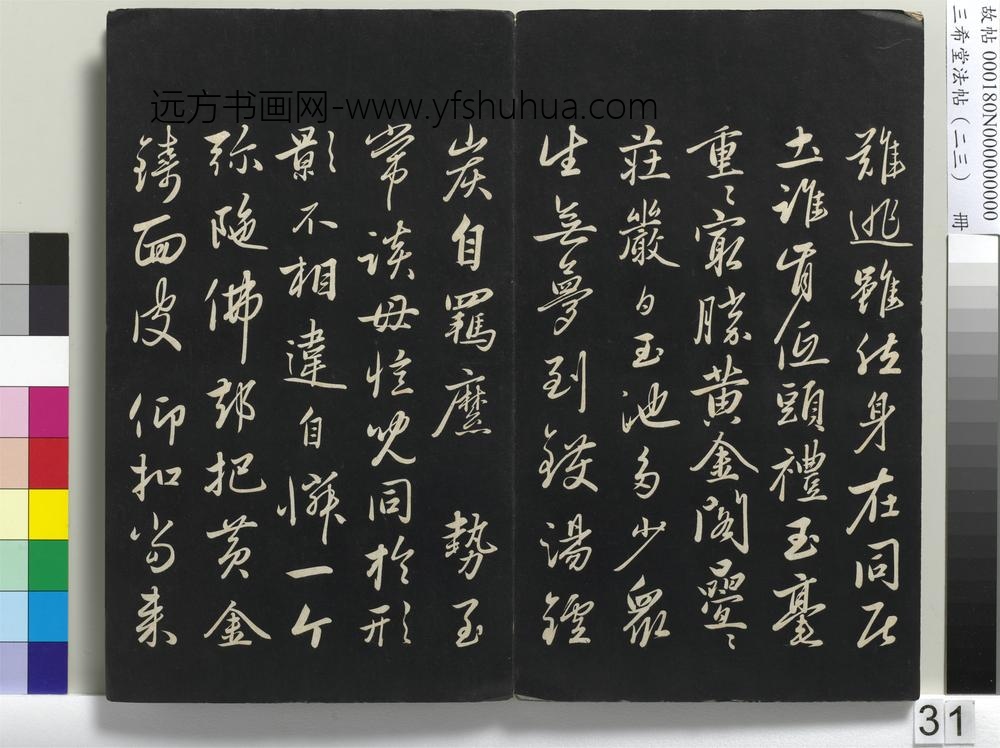 難逃雖然身在同居
土誰肯低頭禮玉毫
重〻寂勝黃金閣疊〻
莊嚴白玉池多少眾
生無夢到鑊湯鑪
炭自羈縻 勢至
常談毋憶兒同於形
影不相違自憐一个
弥陁佛却把黃金
鑄面皮 仰扣當来
远方书画网-www.yfshuhua.com
故帖 000180N000000000
三希堂法帖（二三） 冊
31